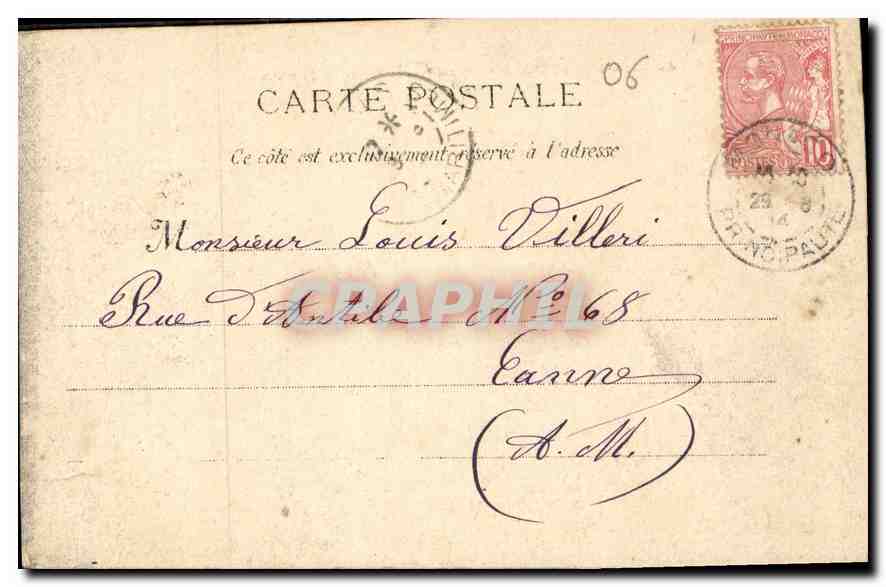 06
PRINCIPAUTÉ DE MONACO
POSTES
10
CARTE POSTALE
Ce côté est exclusivement réservé à l'adresse
29
PRINCIPAUTÉ
Monsieur Louis Villeri
Rue d'Antibe No 68
Canne
(A. M.)
CPAPHIL